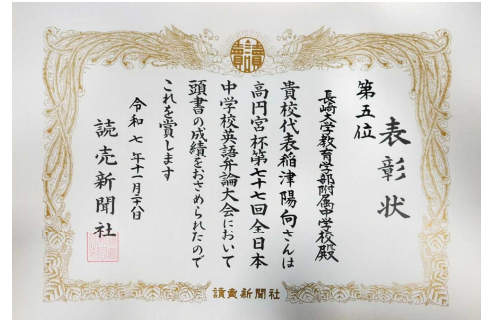 表彰状
第五位
長崎大学教育学部附属中学校殿
貴校代表稲津陽向さんは
高円宮杯第七十七回全日本
中学校英語弁論大会において
頭書の成績をおさめられたので
これを賞します
令和七年十一月二十八日
読売新聞社
讀賣新聞社